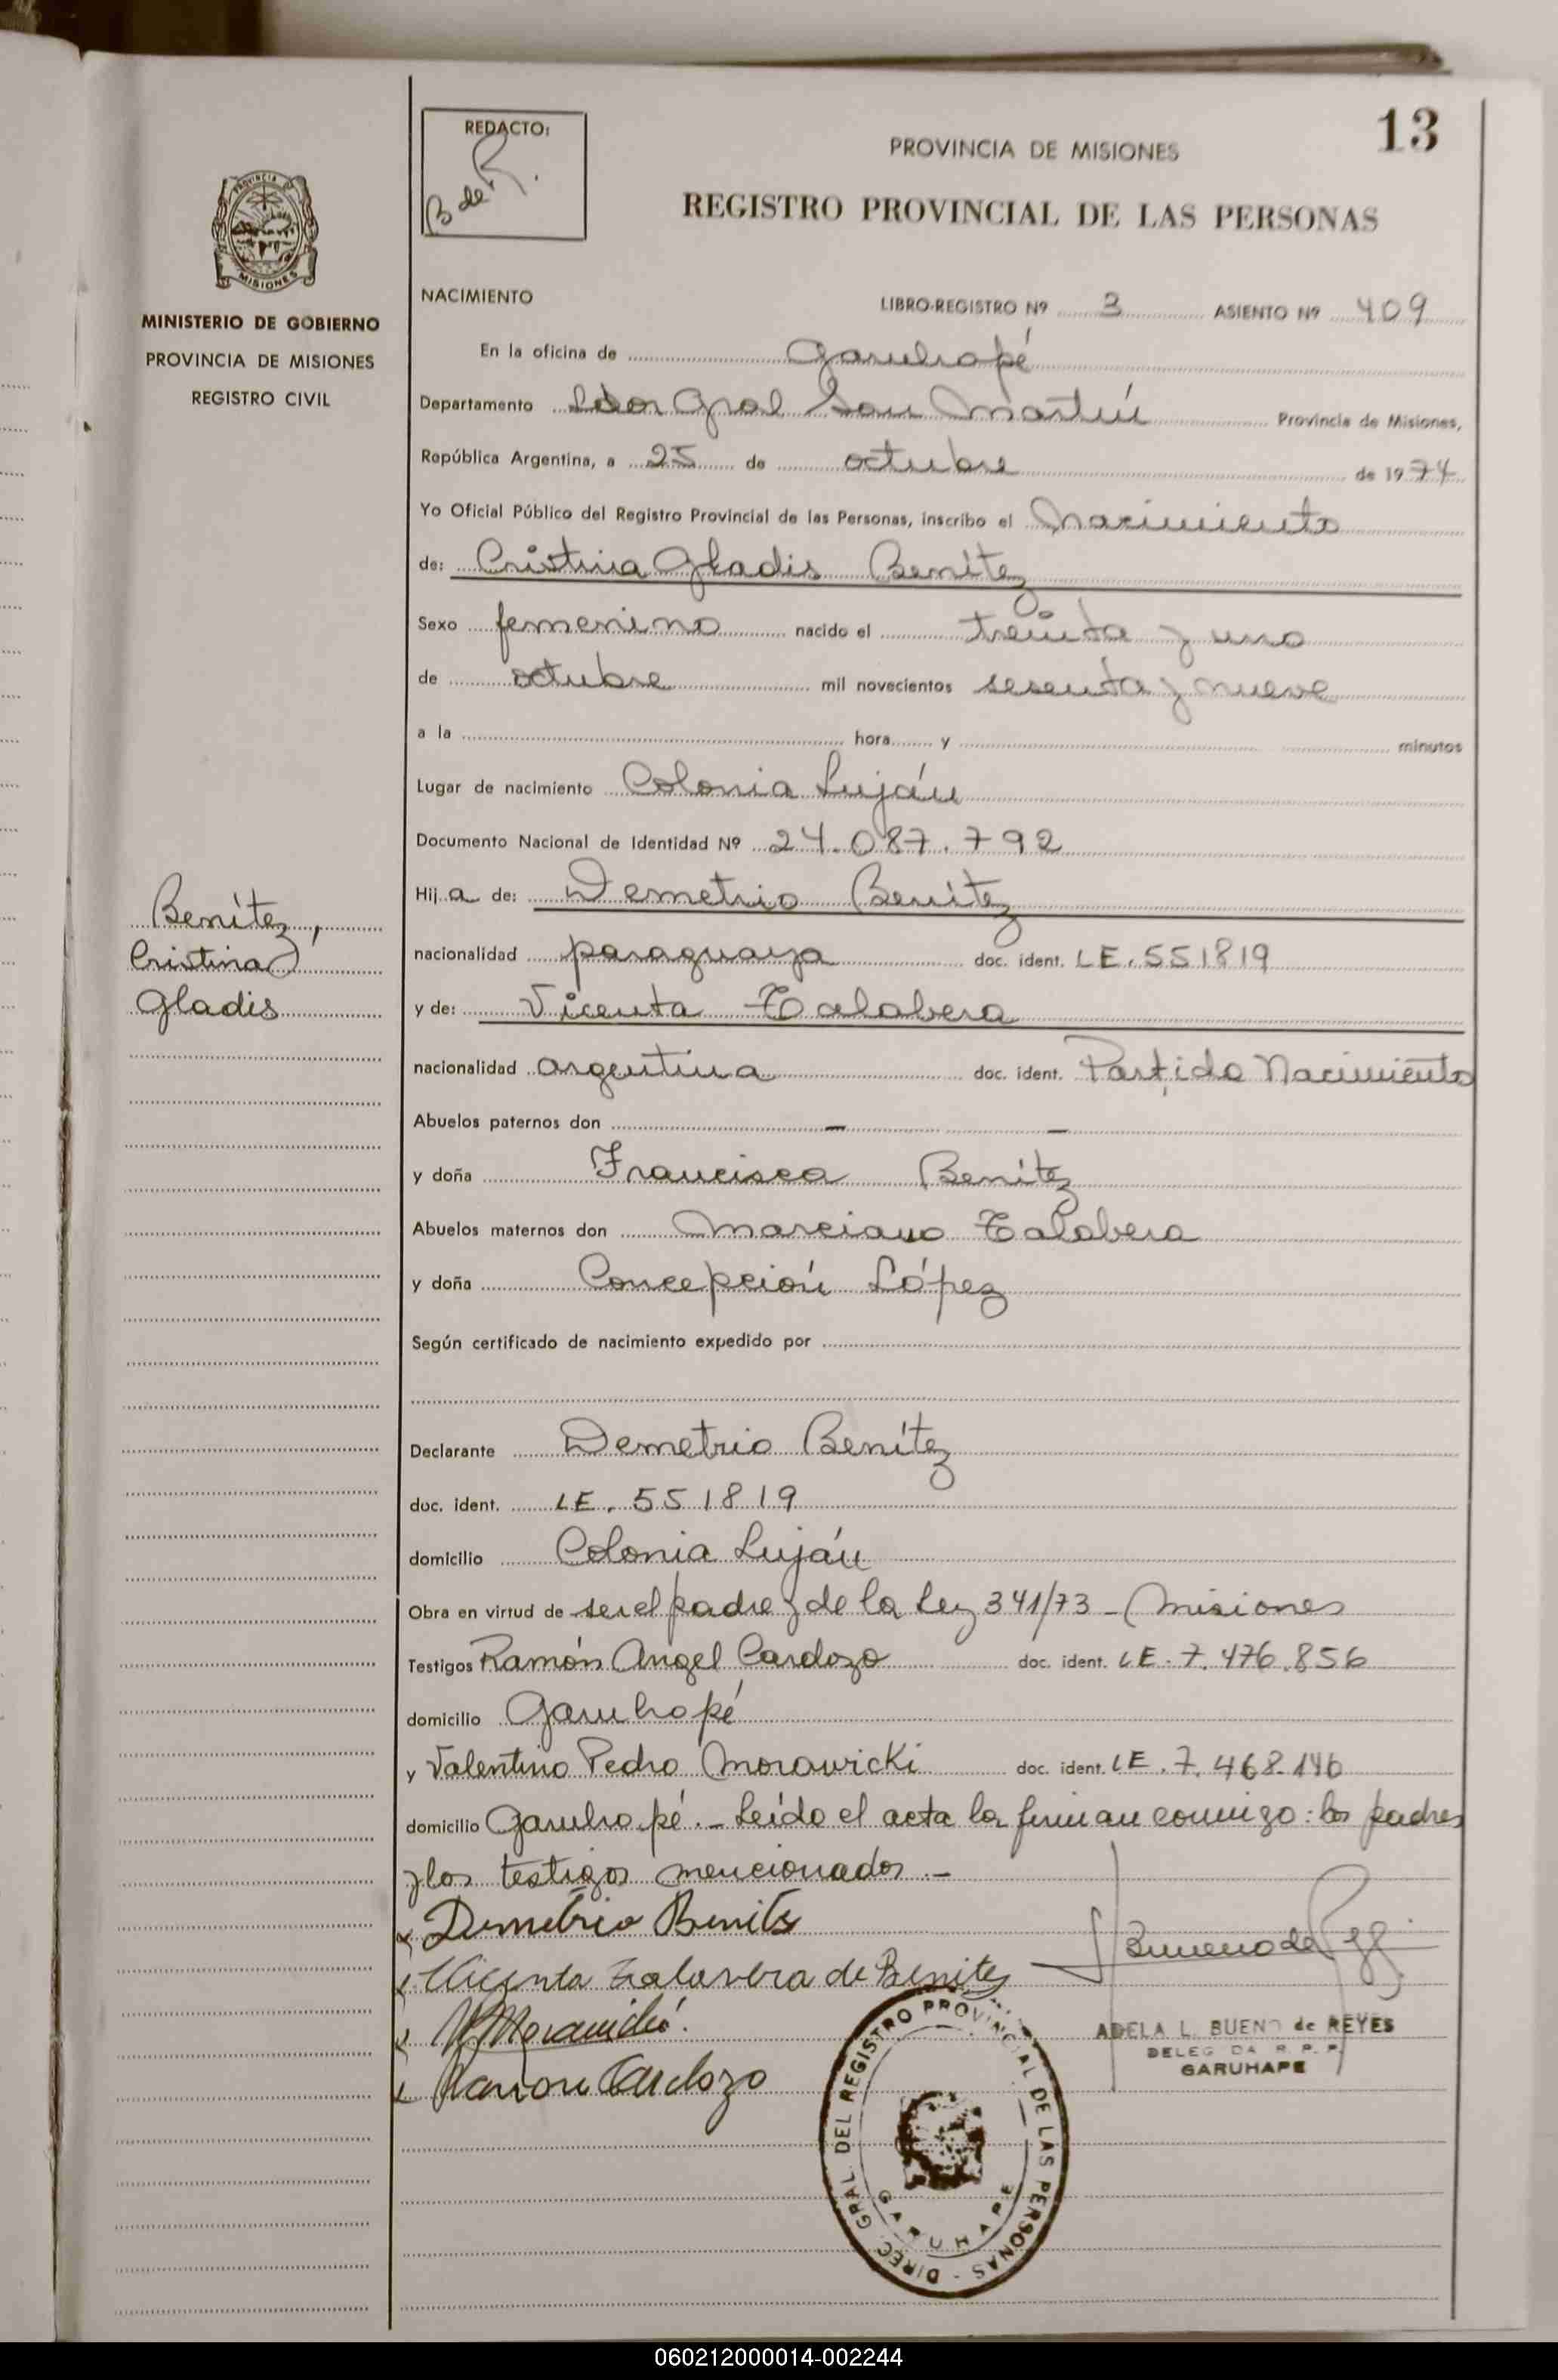 13
REDACTO:
B de R.
PROVINCIA DE MISIONES
REGISTRO PROVINCIAL DE LAS PERSONAS
PROVINCIA DE
MISIONES
MINISTERIO DE GOBIERNO
PROVINCIA DE MISIONES
REGISTRO CIVIL
Benítez,
Cristina
Gladis
NACIMIENTO LIBRO-REGISTRO Nº 3 ASIENTO Nº 409
En la oficina de Garuhapé
Departamento Ldor Gral San Martín Provincia de Misiones,
República Argentina, a 25 de octubre de 1974
Yo Oficial Público del Registro Provincial de las Personas, inscribo el Nacimiento
de: Cristina Gladis Benítez
Sexo femenino nacido el treinta y uno
de octubre mil novecientos sesenta y nueve
a la hora y minutos
Lugar de nacimiento Colonia Luján
Documento Nacional de Identidad Nº 24.087.792
Hija de: Demetrio Benítez
nacionalidad paraguaya doc. ident. LE. 551819
y de: Vicenta Talabera
nacionalidad argentina doc. ident. Partida Nacimiento
Abuelos paternos don - -
y doña Francisca Benítez
Abuelos maternos don Marciano Talabera
y doña Concepción López
Según certificado de nacimiento expedido por
Declarante Demetrio Benítez
doc. ident. LE. 551819
domicilio Colonia Luján
Obra en virtud de ser el padre y de la Ley 341/73 - Misiones
Testigos Ramón Angel Cardozo doc. ident. LE. 7.476.856
domicilio Garuhapé
y Valentino Pedro Morawicki doc. ident. LE. 7.468.146
domicilio Garuhapé.- Leído el acta la firman conmigo: los padres
y los testigos mencionados.-
Demetrio Benites
Vicenta Talavera de Benitez
Ramon Cardozo
ADELA L. BUENO de REYES
DELEG DA R. P. P.
GARUHAPE
DIREC. GRAL. DEL REGISTRO PROVINCIAL DE LAS PERSONAS -
GARUHAPE
060212000014-002244